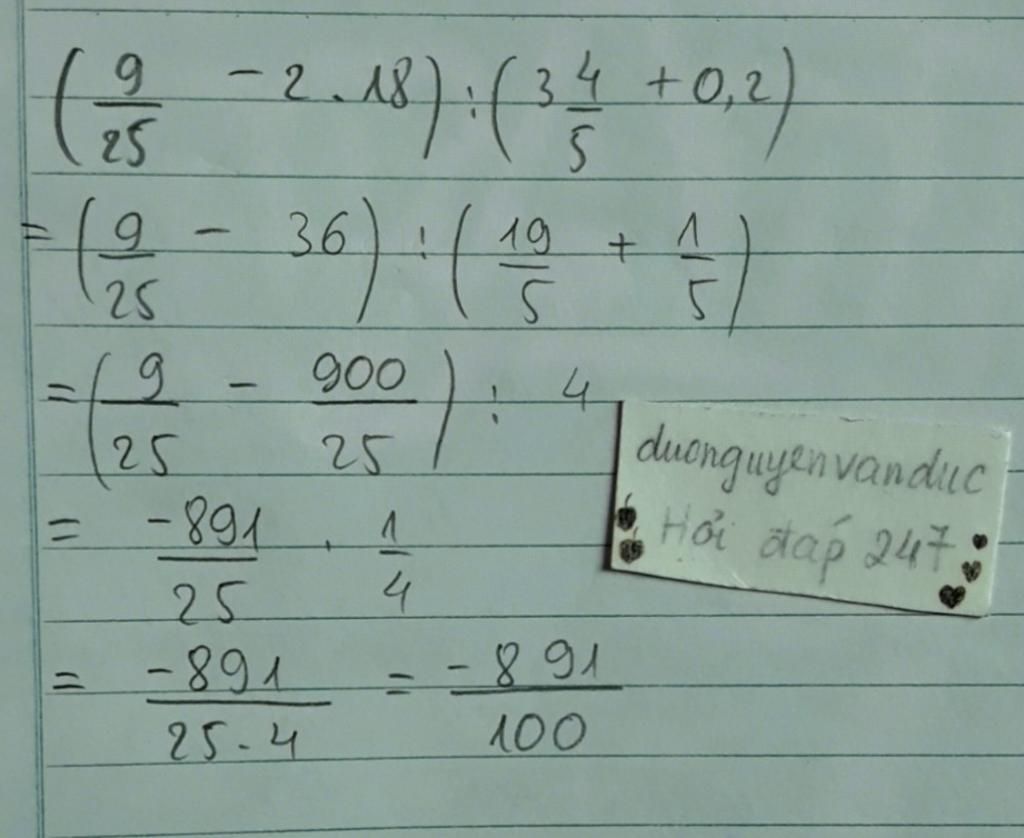 (9/25 - 2 . 18) : (3 4/5 + 0,2)
= (9/25 - 36) : (19/5 + 1/5)
= (9/25 - 900/25) : 4
= -891/25 . 1/4
= -891/25.4 = -891/100
duonguyenvanduc
Hỏi đáp 247